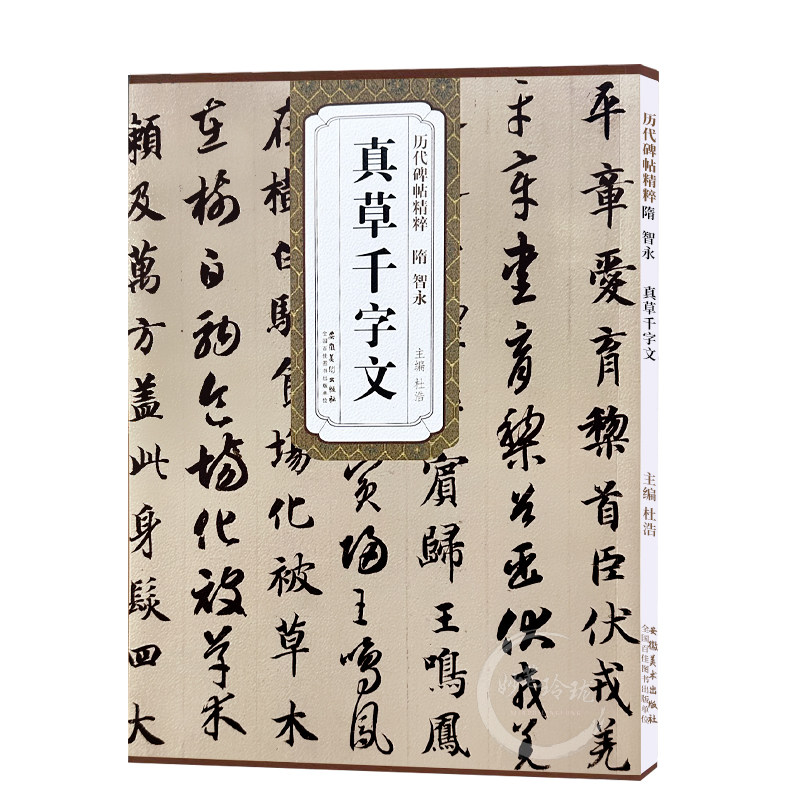 平章愛育黎首臣伏戎羌
平章愛育黎首臣伏戎羌
賓歸王鳴鳳
賓歸王鳴鳳
在樹白駒食場化被草木
在樹白駒食場化被草木
賴及萬方蓋此身髮四大
历代碑帖精粹 隋 智永
主编 杜浩
真草千字文
安徽美术出版社
全国百佳图书出版单位
历代碑帖精粹 隋 智永 真草千字文
主编 杜浩
安徽美术出版社
全国百佳图书出版单位